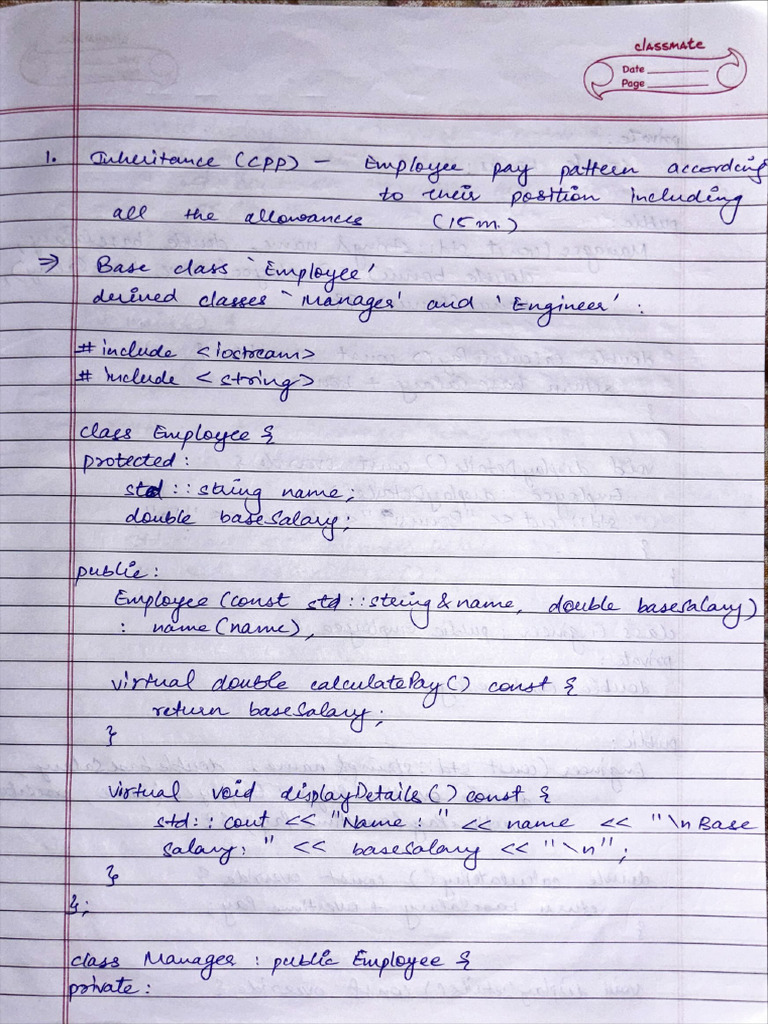 classmate
Date
Page
1. Inheritance (CPP) - Employee pay pattern according
to their position including
all the allowances (15 m.)
⇒ Base class `Employee'
derived classes `Manager' and 'Engineer' :
# include <iostream>
# include <string>
class Employee {
protected :
std :: string name;
double baseSalary;
public :
Employee (const std :: string & name, double baseSalary)
: name (name),
virtual double calculatePay() const {
return baseSalary;
}
virtual void displayDetails () const {
std :: cout << "Name : " << name << "\n Base
salary: " << baseSalary << "\n";
}
};
class Manager : public Employee {
private :